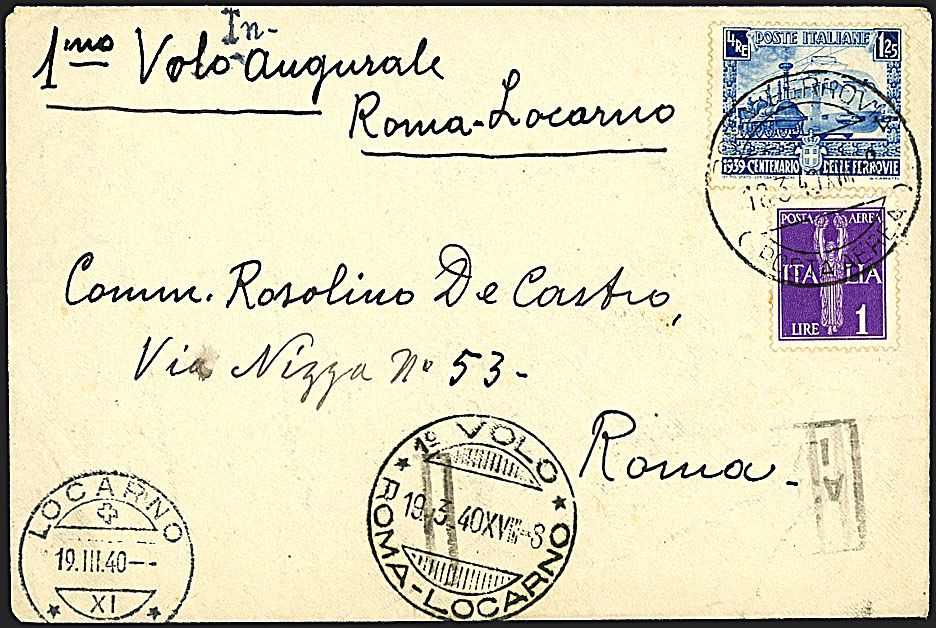 In-
1mo Volo augurale
Roma-Locarno
LIRE POSTE ITALIANE 1,25
1939 CENTENARIO DELLE FERROVIE
FERROVIA
POSTA AEREA
POSTA AEREA
ITALIA
LIRE 1
Comm. Rosolino De Castro,
Via Nizza No 53-
Roma-
LOCARNO
19.III.40--
XI
1º VOLO
19.3.40XVIII-8
ROMA-LOCARNO